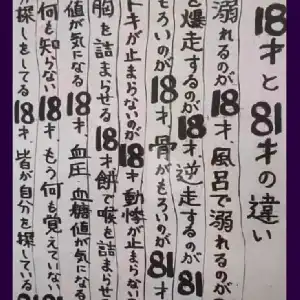 18才と81才の違い
溺れるのが18才、風呂で溺れるのが
を爆走するのが18才、逆走するのが81
もろいのが18才、骨がもろいのが81
ドキが止まらないのが18才、動悸が止まらない
胸を詰まらせる18才、餅で喉を詰まらせる
値が気になる18才、血圧血糖値が気になる
何も知らない18才、もう何も覚えていない
分探しをしてる18才、皆が自分を探している